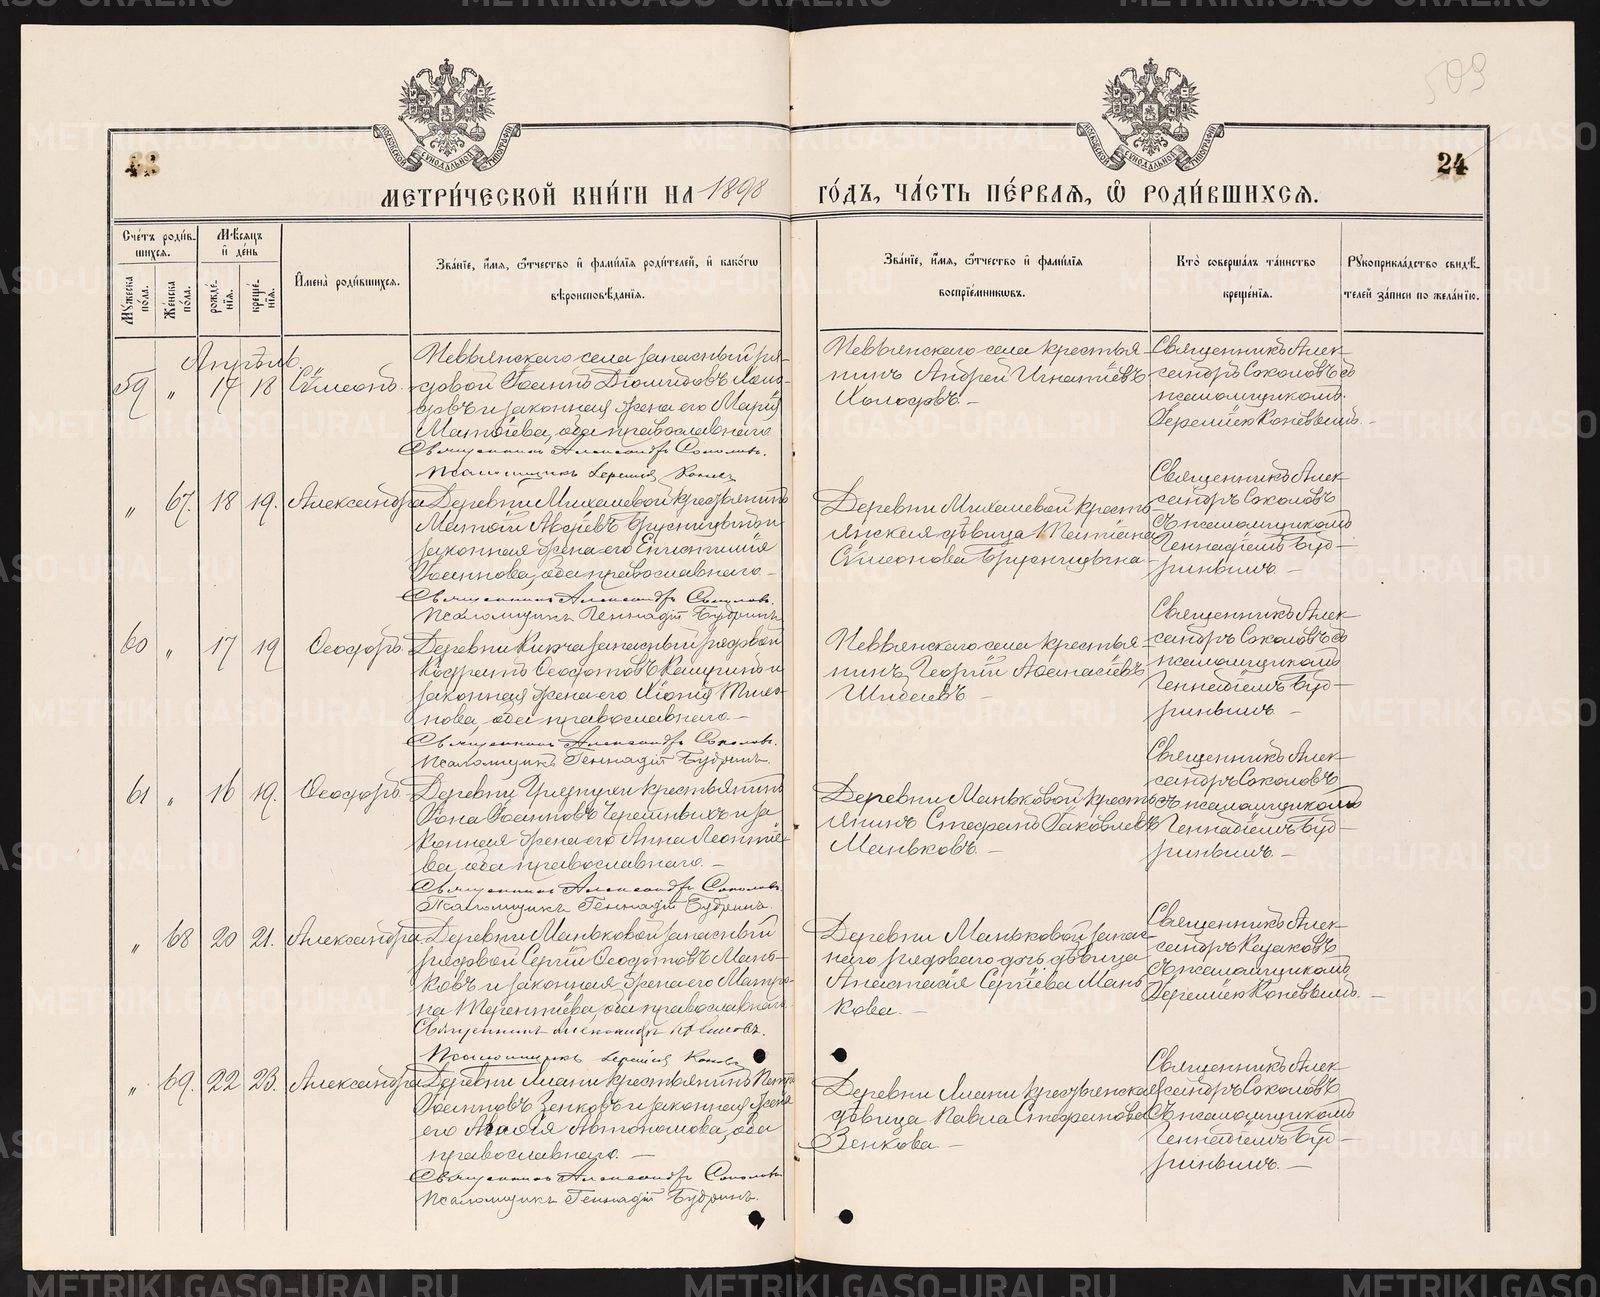 509
24
МЕТРИ́ЧЕСКОЙ КНИ́ГИ НА 1898 ГО́ДЪ, ЧА́СТЬ ПЕ́РВАЯ, Ѡ҆ РОДИ́ВШИХСЯ.
Сче́тъ роди́вшихся.
Му́жеска по́ла.
Же́нска по́ла.
Мѣ́сяцъ и҆ де́нь
рожде́нїя.
креще́нїя.
И҆мена̀ роди́вшихся.
Зва́нїе, и҆́мя, ѻ҆́тчество и҆ фами́лїя роди́телей, и҆ како́гѡ
вѣроисповѣ́данїя.
Зва́нїе, и҆́мя, ѻ҆́тчество и҆ фами́лїя
воспрїе́мникѡвъ.
Кто̀ соверша́лъ та́инство
креще́нїя.
Рꙋкоприкла́дство свидѣ́телей за́писи по жела́нїю.
Апрѣль
59 " 17 18 Сѵмеонъ.
Невьянскаго села запасный ря-
довой Іоаннъ Діомидовъ Холо-
довъ и законная жена его Марія
Матѳіева, оба православнаго
Священникъ Александръ Соколовъ.
Псаломщикъ Еремія Коневъ
Невьянскаго села крестья-
нинъ Андрей Игнатіевъ
Холодовъ. —
Священникъ Алек-
сандръ Соколовъ со
псаломщикомъ
Ереміею Коневымъ. —
" 67. 18 19. Александра
Деревни Михалевой крестьянинъ
Матѳій Авдіевъ Брусницынъ и
законная жена его Епистимія
Іоаннова, оба православнаго —
Священникъ Александръ Соколовъ.
Псаломщикъ Геннадій Будринъ
Деревни Михалевой кресть-
янская дѣвица Татіана
Сѵмеонова Брусницына
Священникъ Алек-
сандръ Соколовъ
съ псаломщикомъ
Геннадіемъ Буд-
ринымъ —
60 " 17 19 Ѳеодоръ
запасный рядовой
законная жена его Хіонія
нова, оба православнаго —
Священникъ Александръ Соколовъ.
Псаломщикъ Геннадій Будринъ.
Невьянскаго села крестья-
нинъ Георгій Аѳанасіевъ
—
Священникъ Алек-
сандръ Соколовъ со
псаломщикомъ
Геннадіемъ Буд-
ринымъ —
61 " 16 19. Ѳеодоръ
Деревни крестьянинъ
Іона Іоанновъ Черемныхъ и за-
конная жена его Анна Леонтіе-
ва, оба православнаго. —
Священникъ Александръ Соколовъ.
Псаломщикъ Геннадій Будринъ.
Деревни Маньковой кресть-
янинъ Стефанъ Іаковлевъ
Маньковъ. —
Священникъ Алек-
сандръ Соколовъ
съ псаломщикомъ
Геннадіемъ Буд-
ринымъ. —
" 68 20 21. Александра
Деревни Маньковой запасный
рядовой Сергій Ѳеодотовъ Мань-
ковъ и законная жена его Матро-
на Терентіева, оба православнаго
Священникъ Александръ
Псаломщикъ Еремія Коневъ
Деревни Маньковой запас-
наго рядоваго дочь дѣвица
Анастасія Сергіева Мань-
кова. —
Священникъ Алек-
сандръ Казаковъ
съ псаломщикомъ
Ереміею Коневымъ. —
" 69. 22 23. Александра
Деревни крестьянинъ Петръ
Іоанновъ Зенковъ и законная жена
его Автономова, оба
православнаго. —
Священникъ Александръ Соколовъ
Псаломщикъ Геннадій Будринъ.
Деревни крестьянская
дѣвица Павла Стефанова
Зенкова —
Священникъ Алек-
сандръ Соколовъ
съ псаломщикомъ
Геннадіемъ Буд-
ринымъ. —
METRIKI.GASO-URAL.RU